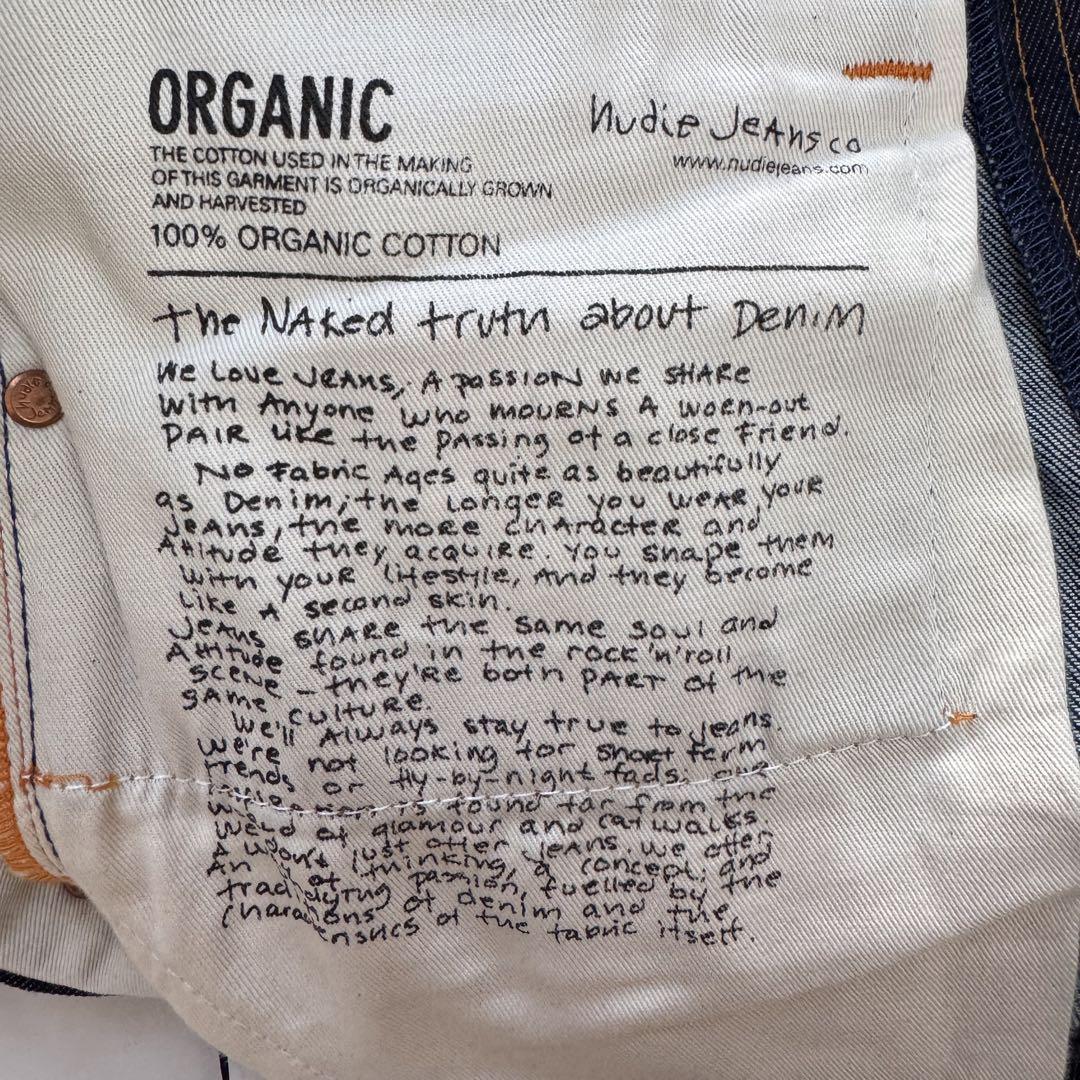 ORGANIC
THE COTTON USED IN THE MAKING
OF THIS GARMENT IS ORGANICALLY GROWN
AND HARVESTED
100% ORGANIC COTTON
Nudie Jeans co
www.nudiejeans.com
The Naked truth about Denim
We Love Jeans, A passion we share
with Anyone who mourns A worn-out
pair like the passing of a close friend.
No Fabric Ages quite as beautifully
as Denim; the Longer you wear your
Jeans, the more character and
Attitude they acquire. You shape them
with your lifestyle, And they become
Like A second skin.
Jeans share the same soul and
Attitude found in the rock'n'roll
scene - they're both part of the
same culture.
We'll Always stay true to jeans.
We're not looking for short term
trends or fly-by-night fads. our
is found far from the
world of glamour and catwalks
won't just offer jeans. We offer
of thinking, a concept, and
An passion, fuelled by the
trad of denim and the
of the fabric itself.
Nudie
Jeans